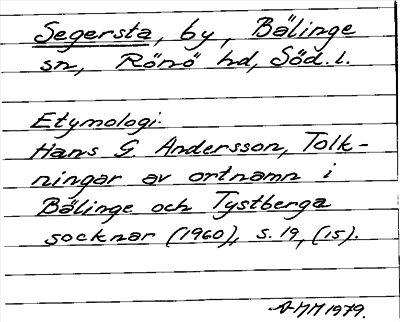 Segersta, by, Bälinge
sn, Rönö hd, Söd. l.
Etymologi:
Hans G. Andersson, Tolk-
ningar av ortnamn i
Bälinge och Tystberga
socknar (1960), s. 19, (15).
AMM 1979.